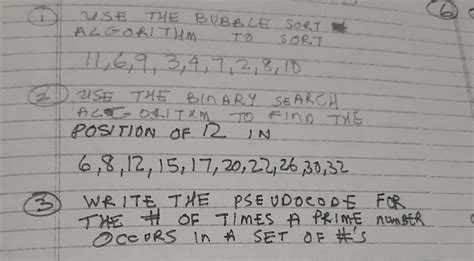 6
1 USE THE BUBBLE SORT
ALGORITHM TO SORT
11,6,9, 3,4,7,2,8,10
2 USE THE BINARY SEARCH
ALGORITHM TO FIND THE
POSITION OF 12 IN
6,8,12,15,17,20,22,26,30,32
3 WRITE THE PSEUDOCODE FOR
THE # OF TIMES A PRIME NUMBER
OCCURS IN A SET OF #'S